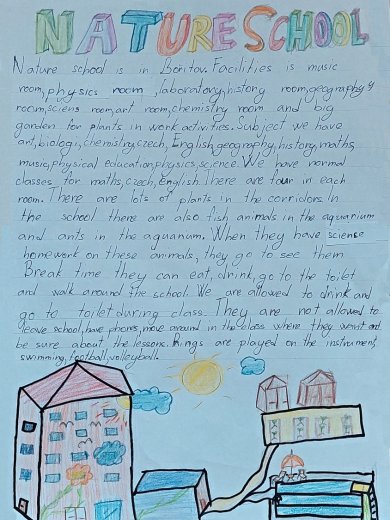 NATURE SCHOOL
Nature school is in Boritov. Facilities is music
room, physics room, laboratory, history room, geography
room, sciens room, art room, chemistry room and big
garden for plants in work activities. Subject we have
art, biologi, chemistry, czech, English, geography, history, maths,
music, physical education, physics, science. We have normal
classes for maths, czech, English. There are four in each
room. There are lots of plants in the corridors. In
the school there are also fish animals in the aquarium
and ants in the aquanum. When they have science
homework on these animals, they go to see them
Break time they can eat, drink, go to the toilet
and walk around the school. We are allowed to drink and
go to toilet during class. They are not allowed to
leave school, have phones, move around in the class where they want and
be sure about the lessons. Rings are played on the instrument,
swimming, football, volleyball.